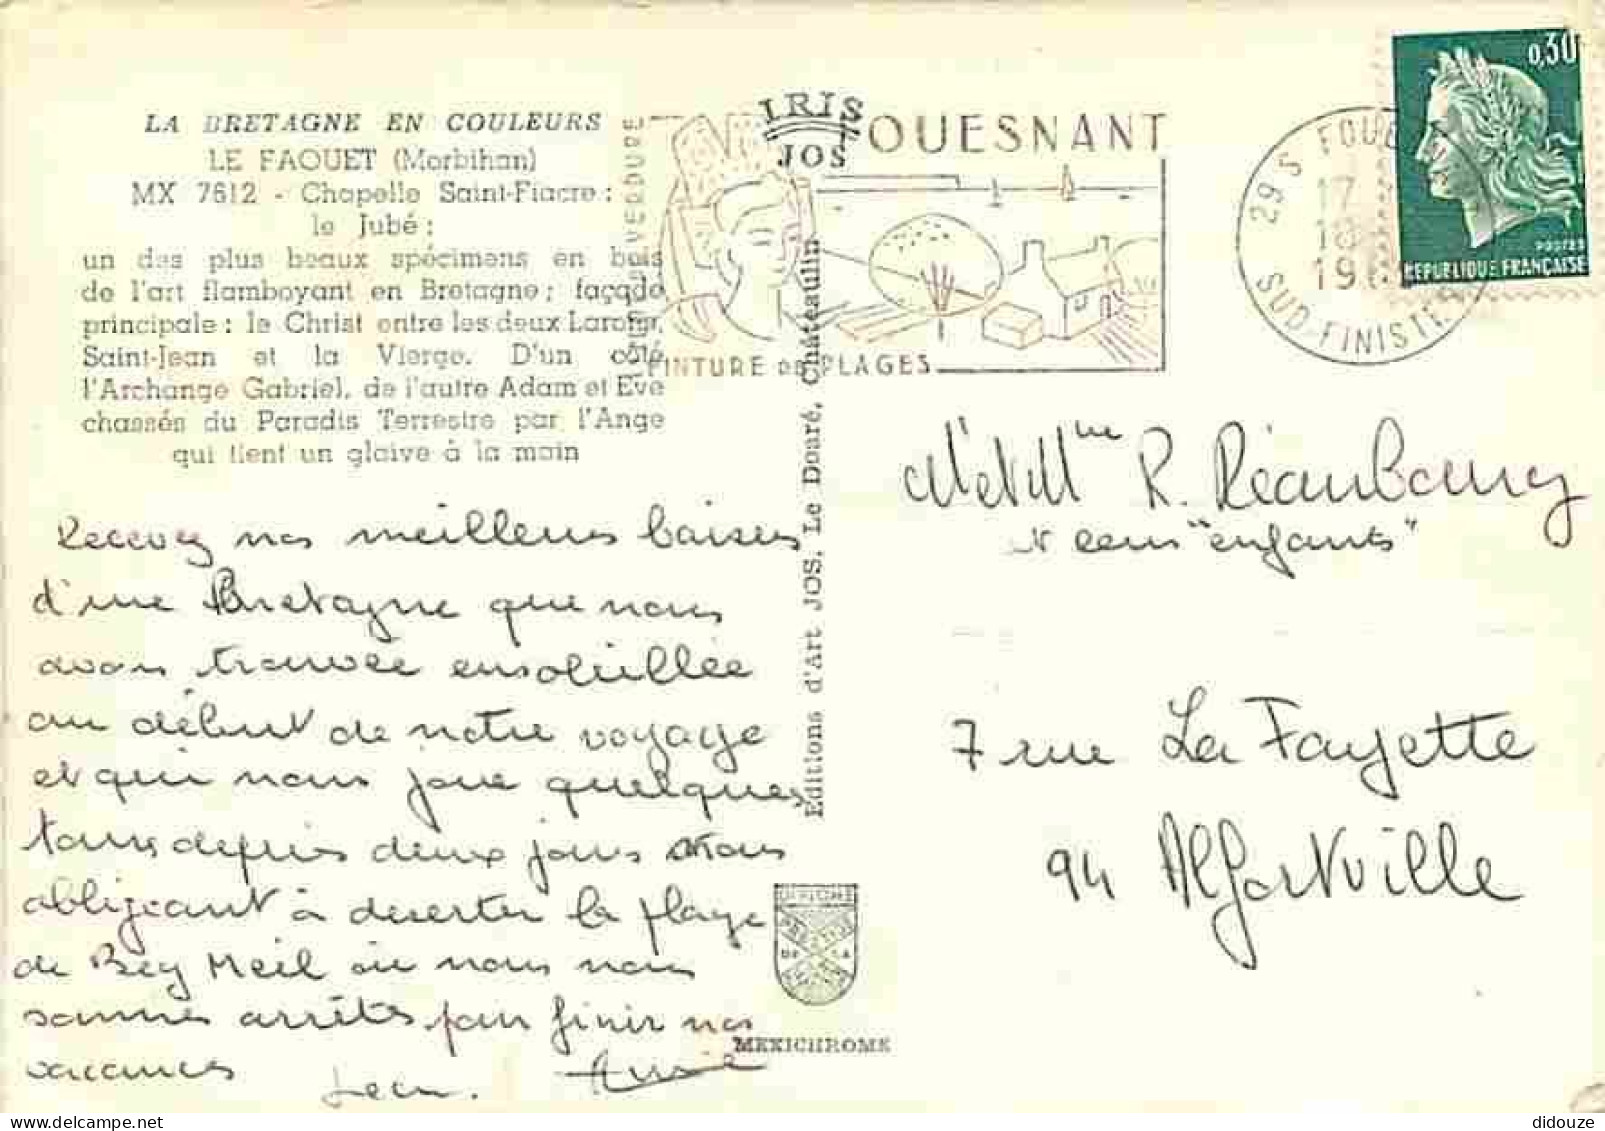 LA BRETAGNE EN COULEURS
LE FAOUET (Morbihan)
MX 7612 - Chapelle Saint-Fiacre :
le Jubé :
un des plus beaux spécimens en bois
de l'art flamboyant en Bretagne ; façade
principale : le Christ entre les deux Larons,
Saint-Jean et la Vierge. D'un côté
l'Archange Gabriel, de l'autre Adam et Eve
chassés du Paradis Terrestre par l'Ange
qui tient un glaive à la main
IRIS
JOS
OUESNANT
VERDURE
EINTURE DE PLAGES
29 S FOUE
17
18
19
SUD-FINISTE
0,30
POSTES
REPUBLIQUE FRANÇAISE
Recevez nos meilleurs baisers
d'une Bretagne que nous
avons trouvée ensoleillée
au début de notre voyage
et qui nous joue quelques
tours depuis deux jours nous
obligeant à déserter la plage
de Beg Meil où nous nous
sommes arrêtés pour finir nos
vacances
Jean. Annie
Editions d'Art JOS. Le Doaré, Châteaulin
MEXICHROME
Mr et Mme R. Réaubourg
et leurs "enfants"
7 rue La Fayette
94 Alfortville
didouze @ delcampe.net